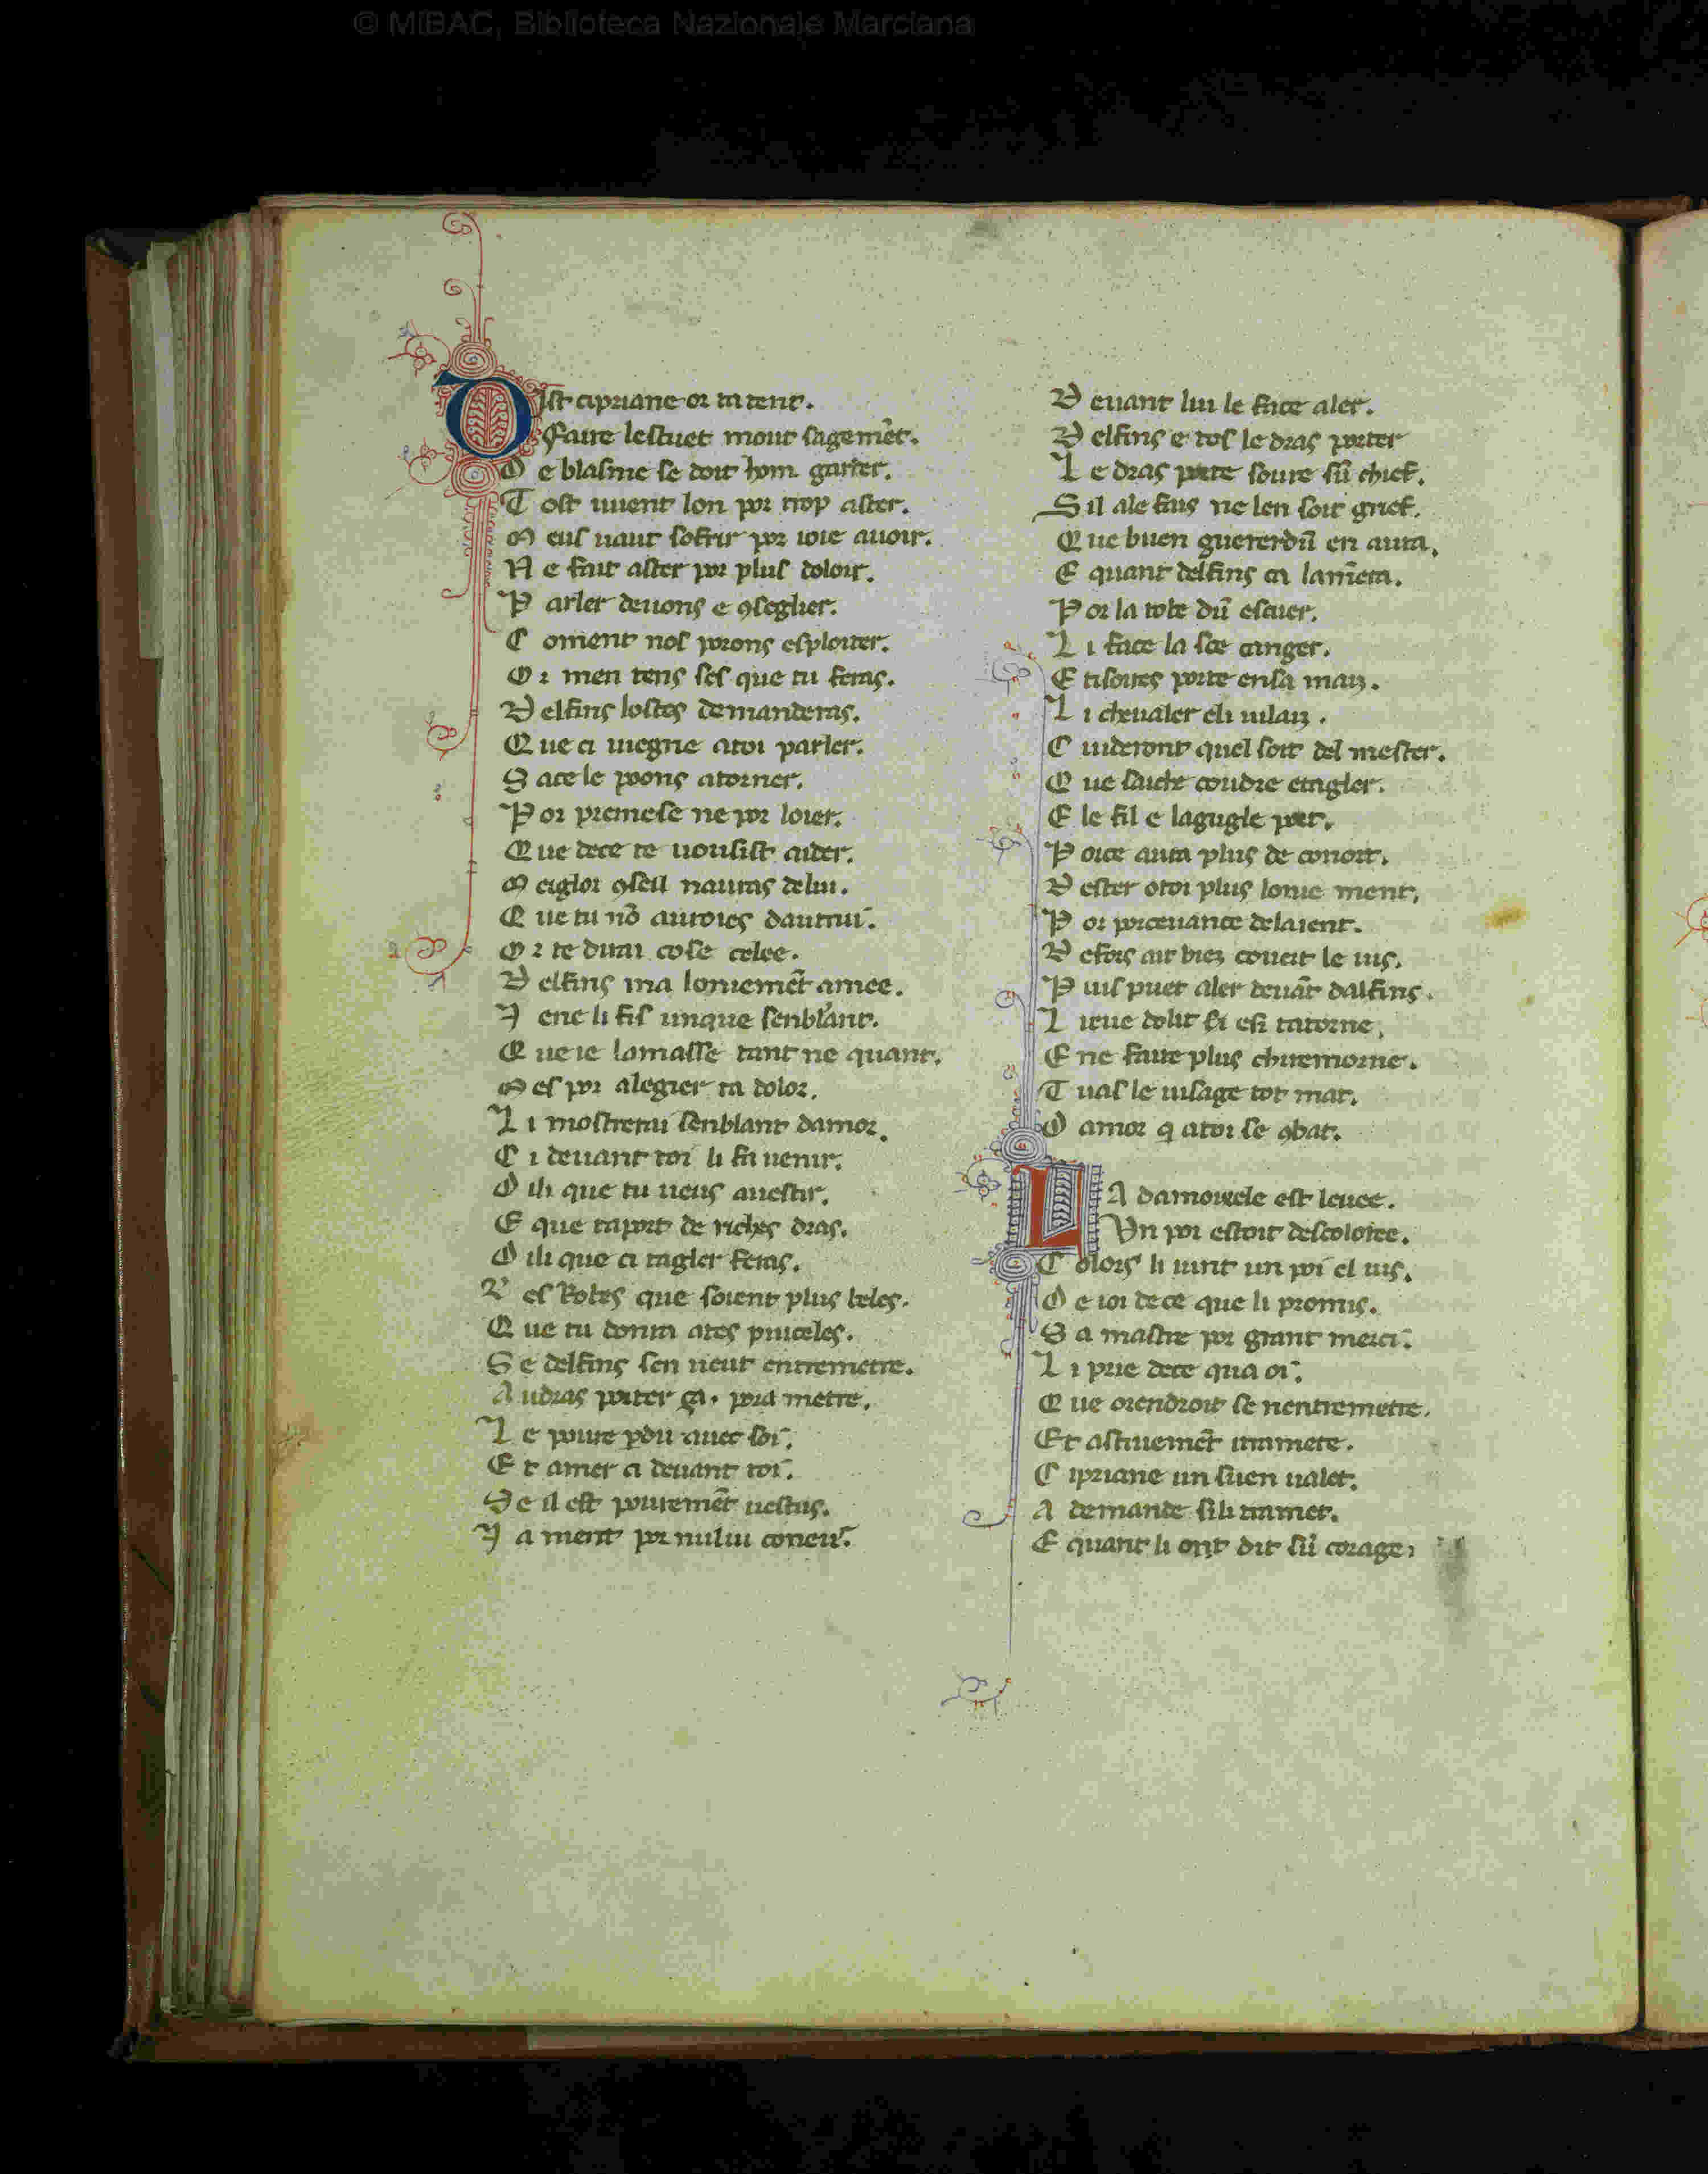 © MiBAC, Biblioteca Nazionale Marciana
Dist cipriane or tatent.
Faire lestuet mout sagemẽt.
D e blasme se doit hom garder.
T ost uuent lon por trop aster.
M eus uaut sofrir por ioie auoir.
N e fait aster por plus doloir.
P arler deuons e ꝯseglier.
C oment nos porons esploiter.
O r men tens ses que tu feras.
D elfins lostes demanderas.
Q ue ci uiegne atoi parler.
S ace le poons atorner.
P or premese ne por loier.
Q ue dece te uousist aider.
M eiglor ꝯseil nauras delui.
Q ue tu nõ auroies dautrui.
O r te dirai cose celee.
D elfins ma loniemẽt amee.
J ene li fis unque senblant.
Q ue ie lamasse tant ne quant.
M es por alegier ta dolor.
L i mostrerai senblant damor.
C i deuant toi li fai uenir.
D ili que tu ueus auestir.
E que taport de riches dras.
D ili que ci tagler feras.
D es Robes que soient plus beles.
Q ue tu donra ates pulceles.
S e delfins sen ueut entremetre.
A udras porter ça. pora metre.
L e poure ꝑdu auec soi.
E t amer ci deuant toi.
S e il est pouremẽt uestus.
J a ment por nului coneu.
D euant lui le face aler.
D elfins e tos le dras porter
L e dras porte soure sũ chief.
S il ale fais ne len soit grief.
Q ue buen guererdũ en aura.
E quant delfins ci lamẽra.
P or la robe dũ escuer.
L i face la soe canger.
E tisoires porte ensa maĩ.
L i cheualer eli uilaĩ.
C uideront quel soit del mester.
Q ue sache coudre etagler.
E le fil e lagugle port.
P oice aura plus de confort.
D ester otoi plus lonie ment.
P or porceuance delaient.
D efors ait bien couert le uis.
P uis puet aler deuãt dalfins.
L ieue dolit si es tatorne.
E ne faire plus chiremorne.
T uas le uisage tot mat.
D amor q atoi se ꝯbat.
LA damoisele est leuee.
Un poi estoit descoloree.
C olors li uint un poi el uis.
D e ioi dece que li promis.
S a mastre por grant merci.
L i prie dece qua oi.
Q ue orendroit se nentremetre.
Et astiuemẽt inamete.
C ipriane un suen ualet.
A demande sili tramet.
E quant li ont dit sũ corage